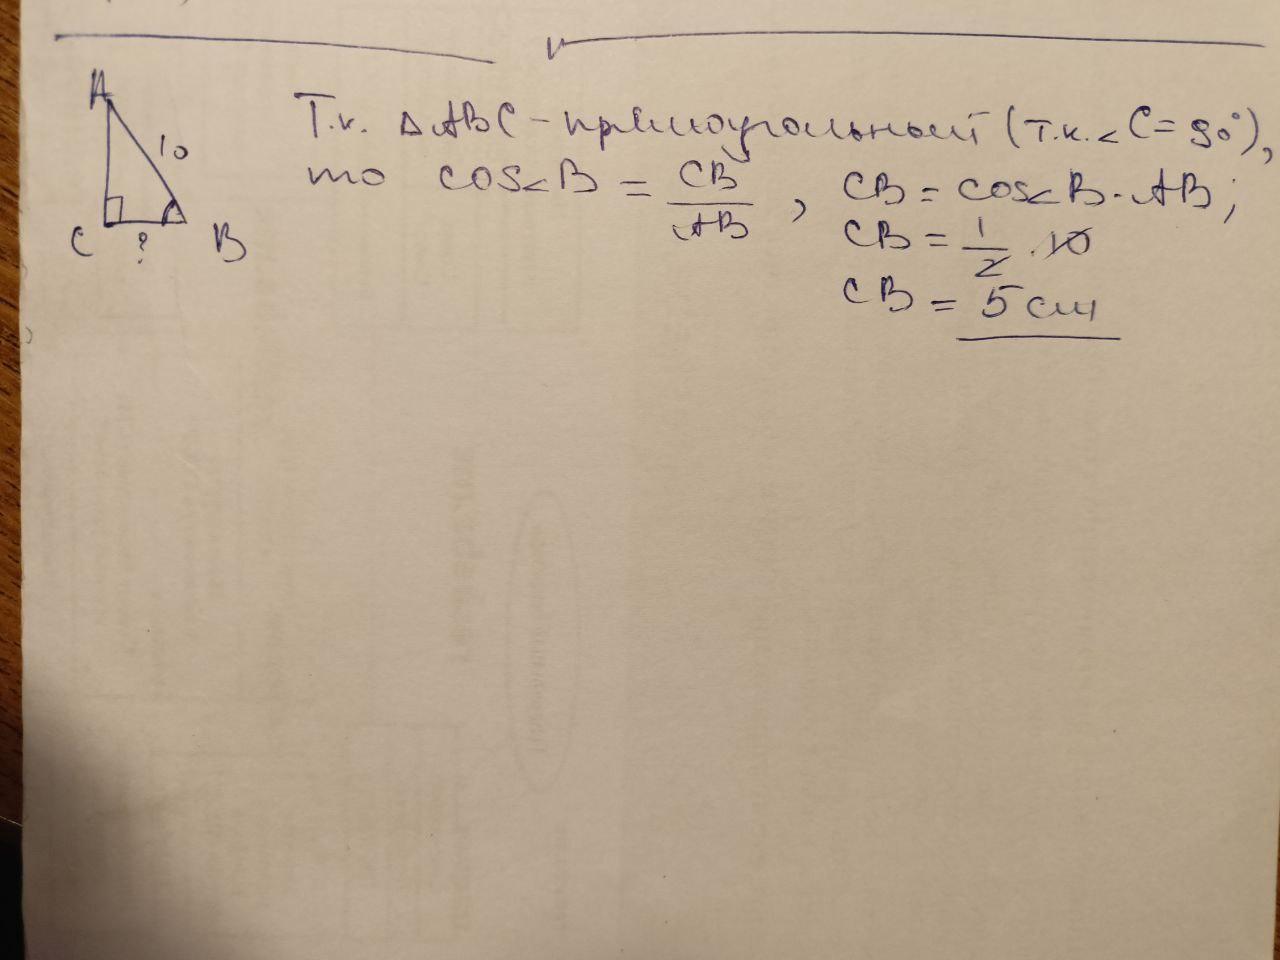 A
10
C ? B
Т.к. △ABC - прямоугольный (т.к. <C = 90°),
то cos<B = CB/AB, CB = cos<B · AB;
CB = 1/2 · 10
CB = 5 см